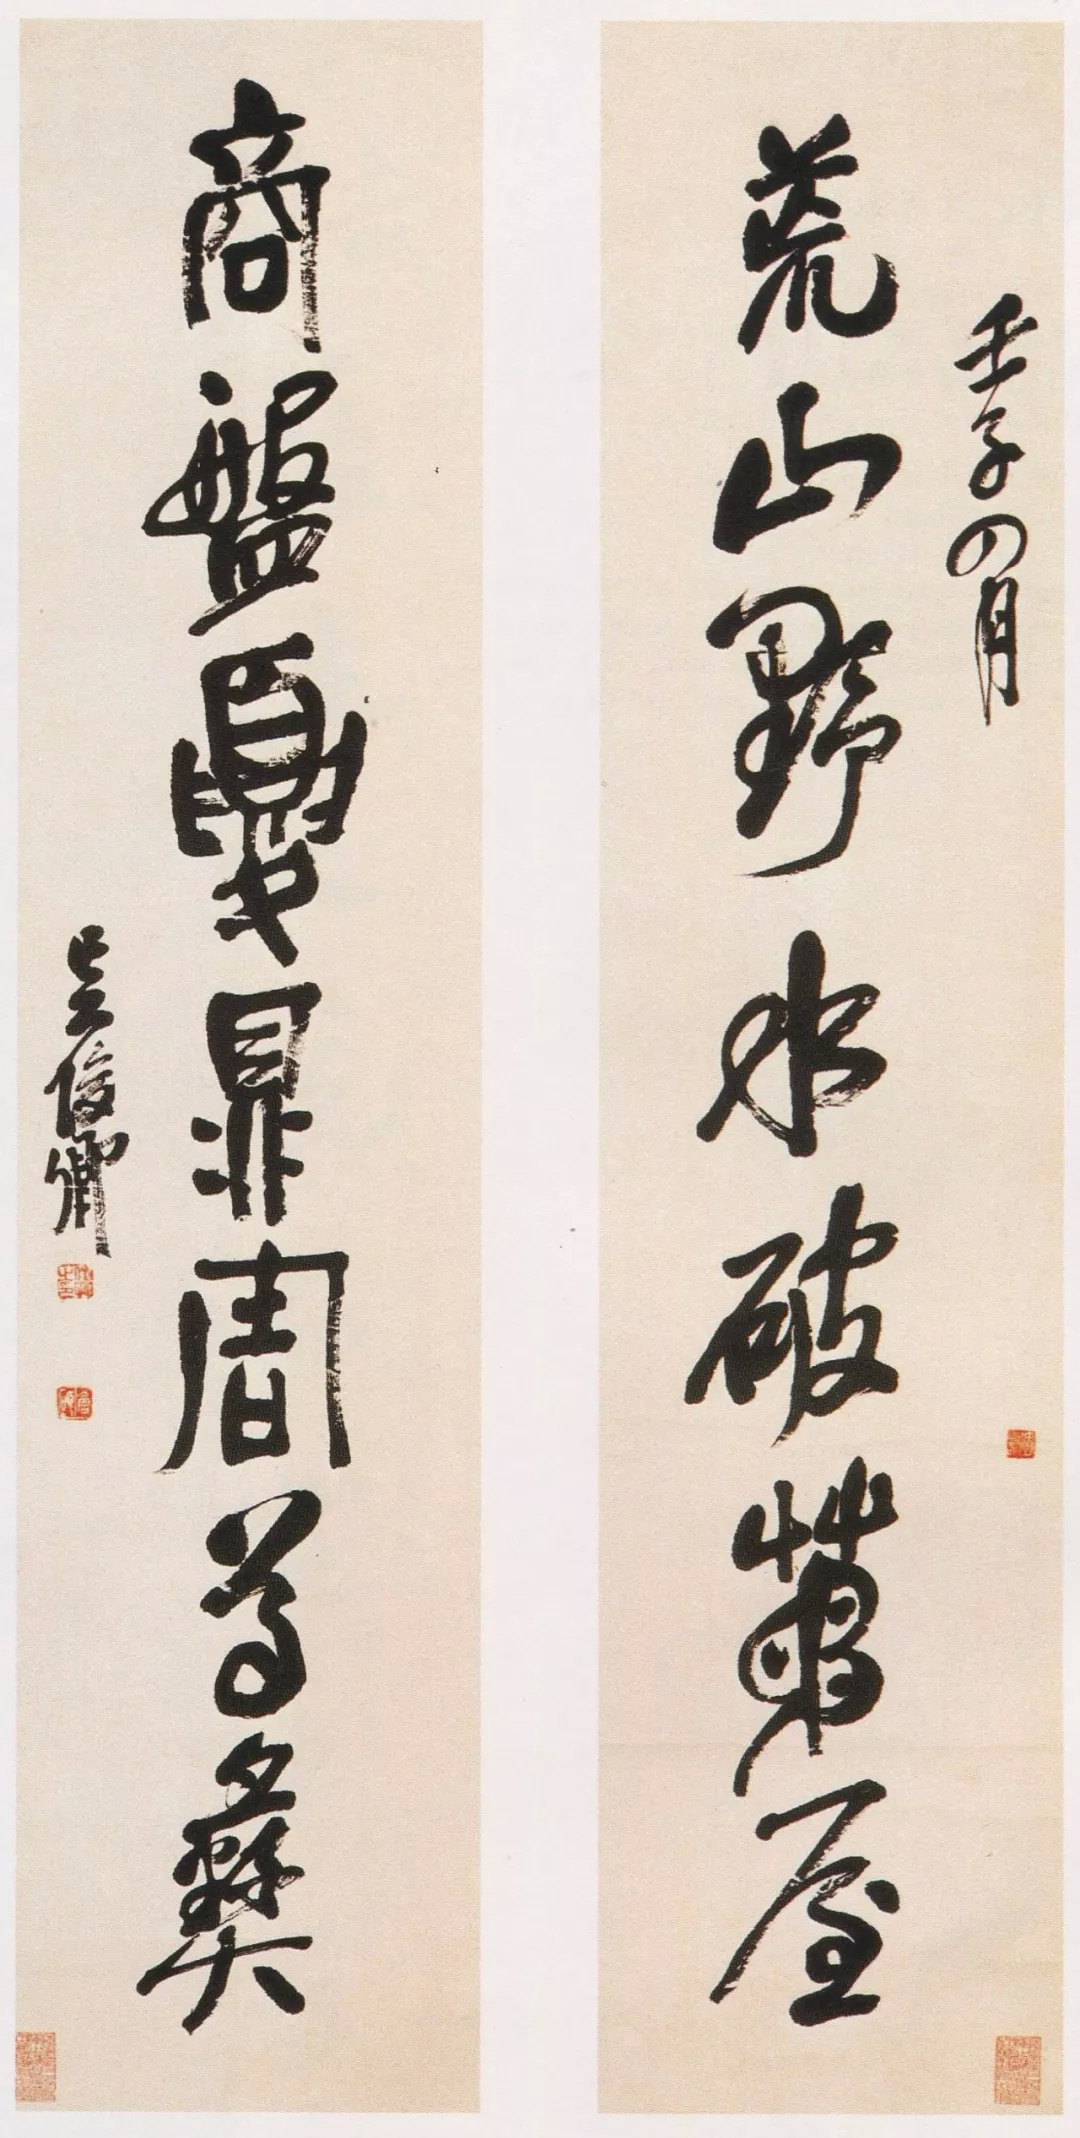 壬子四月
荒山野水破屋
商盤夏鼎周尊彝
吳俊卿